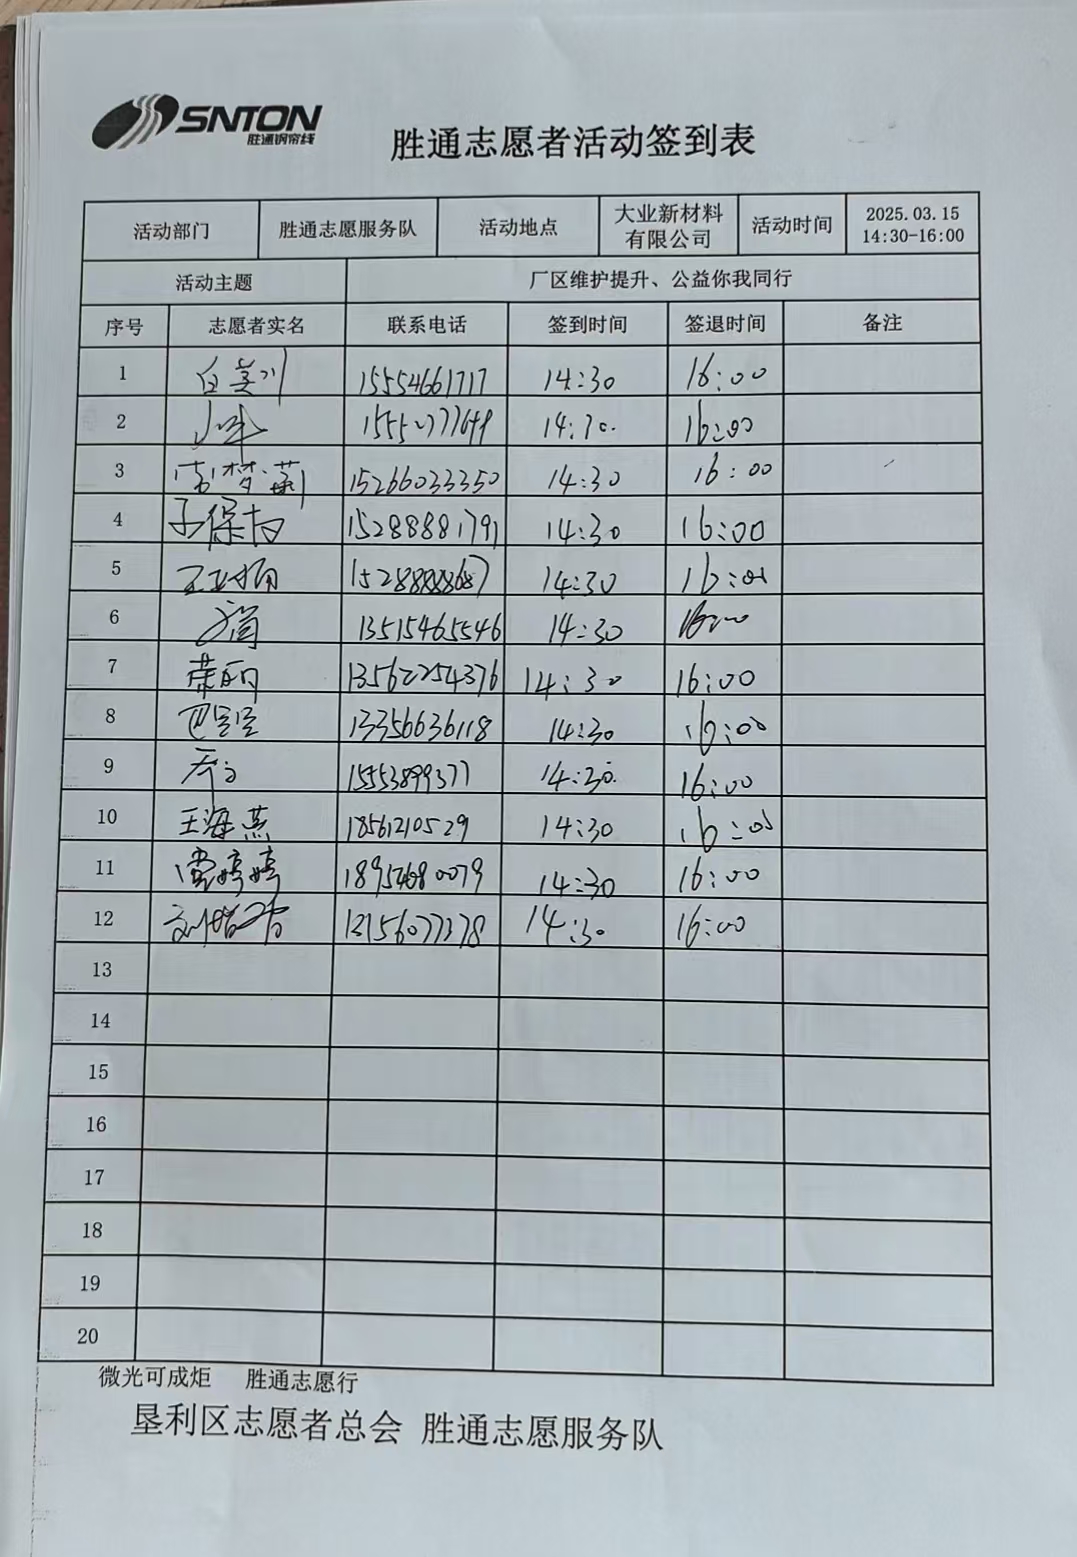 SNTON
胜通钢帘线
胜通志愿者活动签到表
活动部门 胜通志愿服务队 活动地点 大业新材料有限公司 活动时间 2025.03.15 14:30-16:00
活动主题 厂区维护提升、公益你我同行
序号 志愿者实名 联系电话 签到时间 签退时间 备注
1 15554661717 14:30 16:00
2 14:30 16:00
3 15266033350 14:30 16:00
4 15288881791 14:30 16:00
5 14:30 16:00
6 13515465546 14:30 16:00
7 13562254376 14:30 16:00
8 13356636118 14:30 16:00
9 15553899377 14:30 16:00
10 王海燕 18561210529 14:30 16:00
11 14:30 16:00
12 14:30 16:00
13
14
15
16
17
18
19
20
微光可成炬 胜通志愿行
垦利区志愿者总会 胜通志愿服务队